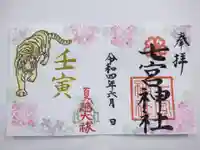 奉拝
七宮神社
令和四年六月 日
夏越大祓
壬寅